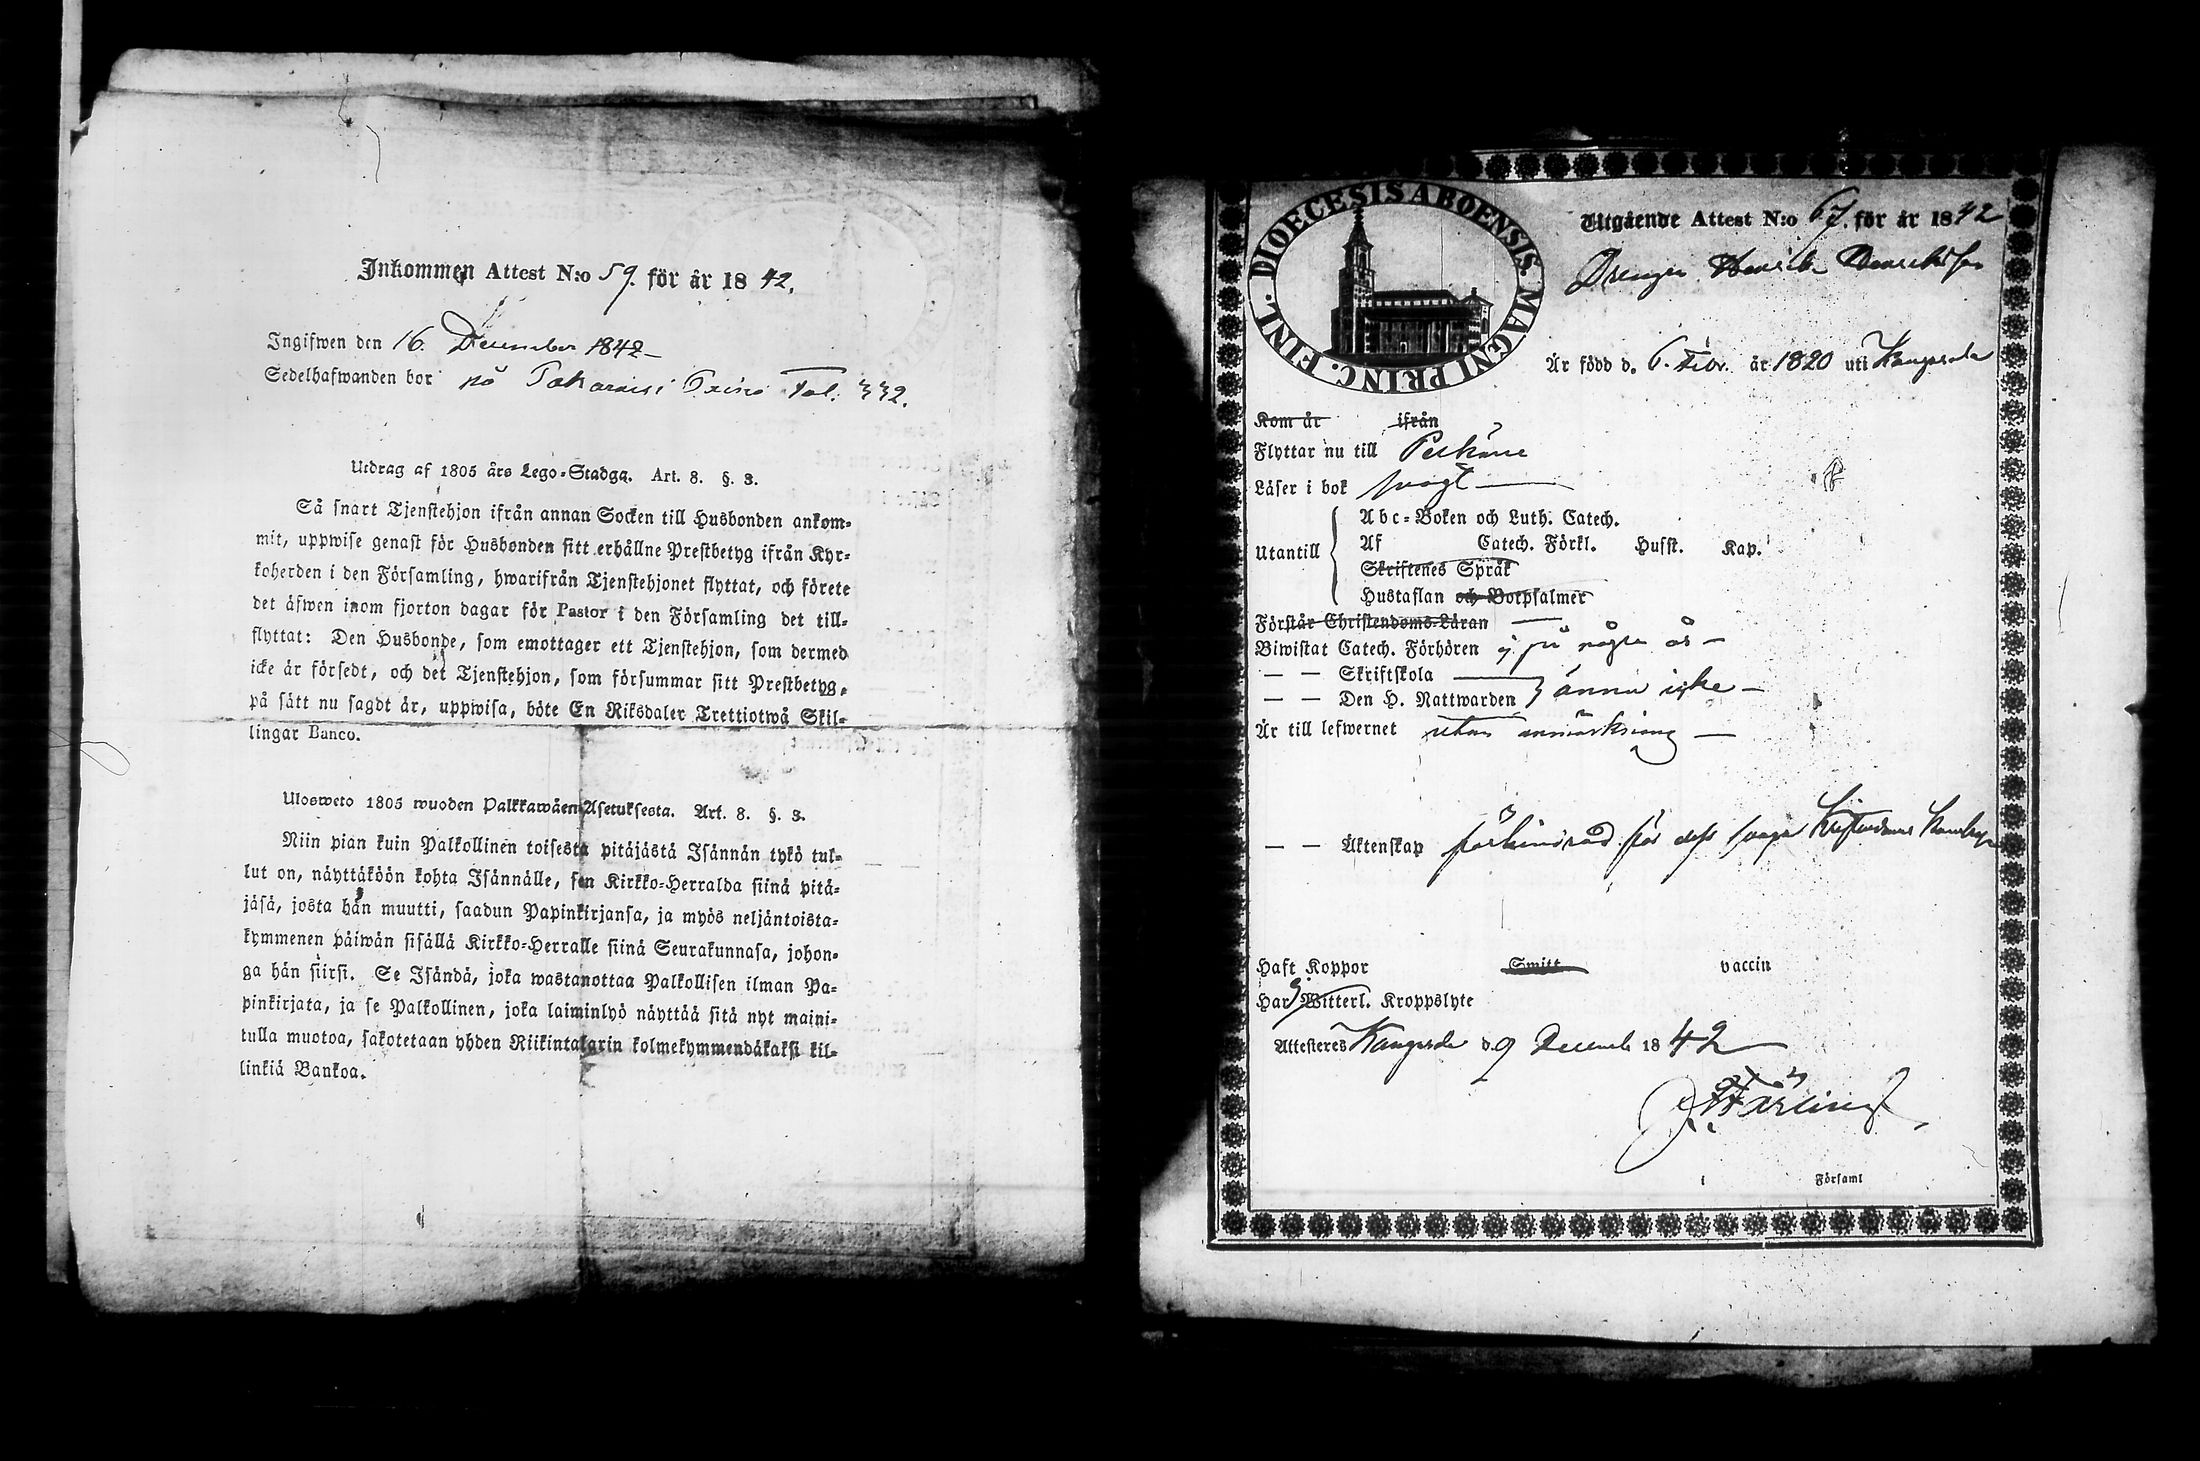 Inkommen Attest N:o 59. för år 1842.
Ingifwen den 16. December 1842
Sedelhafwanden bor på Fol. 332.
Utdrag af 1805 års Lego-Stadga. Art. 8. §. 3.
Så snart Tjenstehjon ifrån annan Socken till Husbonden ankom-
mit, uppwise genast för Husbonden sitt erhållne Prestbetyg ifrån Kyr-
koherden i den Församling, hwarifrån Tjenstehjonet flyttat, och förete
det äfwen inom fjorton dagar för Pastor i den Församling det till-
flyttat: Den Husbonde, som emottager ett Tjenstehjon, som dermed
icke är försedt, och det Tjenstehjon, som försummar sitt Prestbetyg,
på sätt nu sagdt är, uppwisa, böte En Riksdaler Trettiotwå Skil-
lingar Banco.
Ulosweto 1805 wuoden Palkkawäen Asetuksesta. Art. 8. §. 3.
Niin pian kuin Palkollinen toisesta pitäjästä Isännän tykö tul-
lut on, näyttäköön kohta Isännälle, sen Kirkko-Herralda siinä pitä-
jäsä, josta hän muutti, saadun Papinkirjansa, ja myös neljäntoista-
kymmenen päiwän sisällä Kirkko-Herralle siinä Seurakunnasa, johon-
ga hän siirsi. Se Isändä, joka wastanottaa Palkollisen ilman Pa-
pinkirjata, ja se Palkollinen, joka laiminlyö näyttää sitä nyt maini-
tulla muotoa, sakotetaan yhden Riikintalarin kolmekymmendäkaksi kil-
linkiä Bankoa.
DIOECESIS ABOENSIS MAGNI PRINC. FINL.
Utgående Attest N:o 67. för år 1842
Drengen Henrik Henriksson
Är född d. 6. Febr. år 1820 uti Kangasala
Kom år ifrån
Flyttar nu till Pelkäne
Läser i bok svagt
Utantill
Abc-Boken och Luth. Catech.
Af Catech. Förkl. Husst. Kap.
Skriftenes Språk
Hustaflan och Botpsalmer
Förstår Christendoms-Läran
Biwistat Catech. Förhören ej på några år
— — Skriftskola
— — Den H. Nattwarden } ännu icke
Är till lefwernet utan anmärkning
— — Äktenskap förhindrad för dess svaga Kristendoms Kunskap
Haft Koppor Smitt vaccin
Har ej Witterl. Kroppslyte
Attesteres Kangasala d. 9 Decemb 1842
i Församl